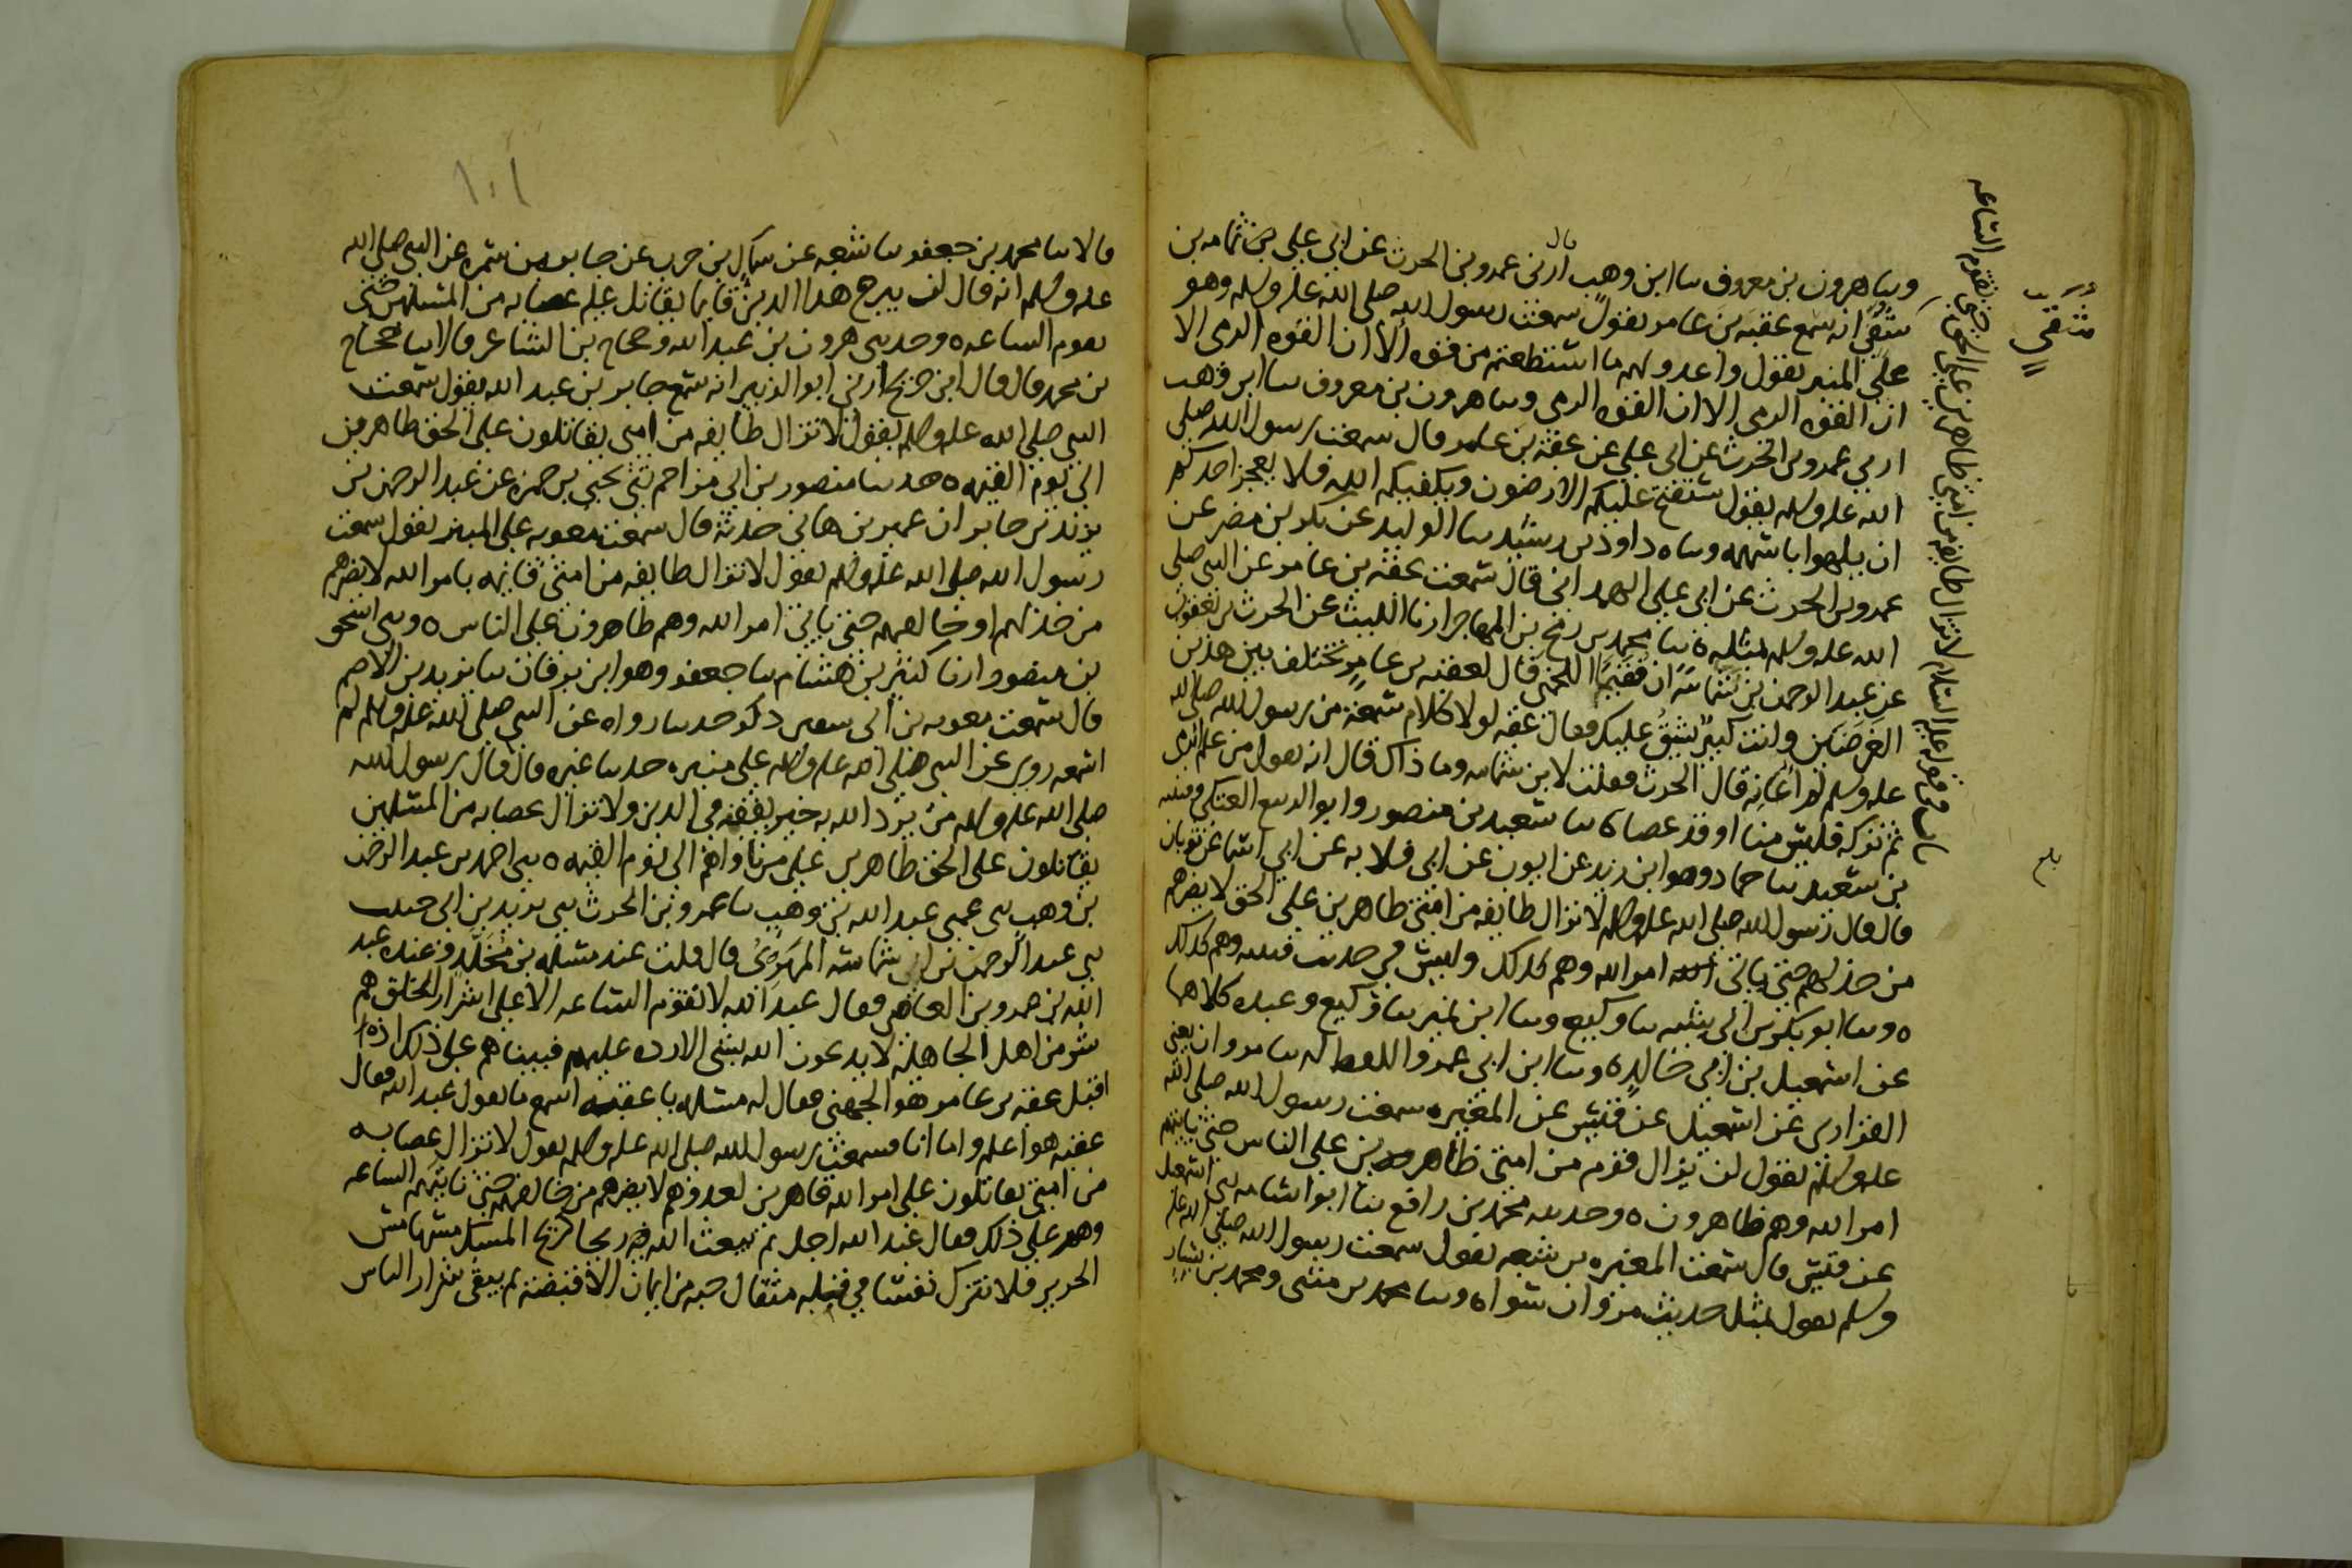 وسا هرون بن معروف سا ابن وهب قال ارنى عمرو بن الحرث عن ابى على بن ثمامه بن
شفى انه سمع عقبه بن عامر يقول سمعت رسول الله صلى الله عله وسلم وهو
على المنبر يقول واعدو لهم ما استطعتم من قوه الا ان القوه الرمى الا
ان القوه الرمى الا ان القوه الرمى وسا هرون بن معروف سا ابن وهب
ارنى عمرو بن الحرث عن ابى على عن عقبه بن عامر قال سمعت رسول الله صلى
الله عله وسلم يقول ستفتح عليكم الارضون ويكفيكم الله فلا يعجز احدكم
ان يلهوا باسهمه وساه داود بن رشيد سا الوليد عن بكر بن مضر عن
عمرو بن الحرث عن ابى على الهمدانى قال سمعت عقبه بن عامر عن النبى صلى
الله عله وسلم بمثله ه سا محمد بن رمح بن المهاجر ارنا الليث عن الحرث بن يعقوب
عن عبد الرحمن بن شماسه ان فقيما اللخمى قال لعقبه بن عامر تختلف بين هذين
الغرضين وانت كبير يشق عليك فقال عقبه لولا كلام سمعته من رسول الله صلى الله
عله وسلم لم اعانه قال الحرث فقلت لابن شماسه وما ذاك قال انه يقول من علم الرمى
ثم تركه فليس منا او قد عصا ه سا سعيد بن منصور وابو الربيع العتكى وقتيبه
بن سعيد سا حماد وهو ابن زيد عن ايوب عن ابى قلابه عن ابى اسما عن ثوبان
قال قال رسول الله صلى الله عله وسلم لا تزال طايفه من امتى ظاهرين على الحق لا يضرهم
من خذلهم حتى ياتى امر الله وهم كذلك وليس فى حديث قتيبه وهم كذلك
ه وسا ابو بكر بن ابى شيبه سا وكيع وسا ابن نمير سا وكيع وعبده كلاهما
عن اسمعيل بن ابى خالد ه وسا ابن ابى عمر واللفظ له سا مروان يعنى
الفزارى عن اسمعيل عن قيس عن المغيره سمعت رسول الله صلى الله
عله وسلم يقول لن يزال قوم من امتى ظاهرين على الناس حتى ياتيهم
امر الله وهم ظاهرون ه وحدثنيه محمد بن رافع سا ابو اسامه سى اسمعيل
عن قيس قال سمعت المغيره بن شعبه يقول سمعت رسول الله صلى الله عله
وسلم يقول بمثل حديث مروان سواه وسا محمد بن مثنى ومحمد بن بشار
باب فى قوله عليه السلام لا تزال طايفه من امتى ظاهرين على الحق حتى تقوم الساعه
شفى
بلغ
١٠١
قالا سا محمد بن جعفر سا شعبه عن سماك بن حرب عن جابر بن سمره عن النبى صلى الله
عله وسلم انه قال لن يبرح هذا الدين قايما يقاتل عليه عصابه من المسلمين حتى
تقوم الساعه ه وحدثنى هرون بن عبد الله وحجاج بن الشاعر قالا سا حجاج
بن محمد قال قال ابن جريج ارنى ابو الزبير انه سمع جابر بن عبد الله يقول سمعت
النبى صلى الله عله وسلم يقول لا تزال طايفه من امتى يقاتلون على الحق ظاهرين
الى يوم القيمه ه حدثنا منصور بن ابى مزاحم ثنى يحيى بن حمزه عن عبد الرحمن بن
يزيد بن جابر ان عمير بن هانى حدثه قال سمعت معويه على المنبر يقول سمعت
رسول الله صلى الله عله وسلم يقول لا تزال طايفه من امتى قايمه بامر الله لا يضرهم
من خذلهم او خالفهم حتى ياتى امر الله وهم ظاهرون على الناس ه وسى اسحق
بن منصور ارنا كثير بن هشام سا جعفر وهو ابن برقان سا يزيد بن الاصم
قال سمعت معويه بن ابى سفين ذكر حديثا رواه عن النبى صلى الله عله وسلم لم
اسمعه روى عن النبى صلى الله عله وسلم على منبره حديثا غيره قال قال رسول الله
صلى الله عله وسلم من يرد الله به خير يفقهه فى الدين ولا تزال عصابه من المسلمين
يقاتلون على الحق ظاهرين على من ناواهم الى يوم القيمه ه سى احمد بن عبد الرحمن
بن وهب سى عمى عبد الله بن وهب سا عمرو بن الحرث سى يزيد بن ابى حبيب
سى عبد الرحمن بن شماسه المهرى قال قلت عند مسلمه بن مخلد وعنده عبد
الله بن عمرو بن العاص فقال عبد الله لا تقوم الساعه الا على اشرار الخلق هم
شر من اهل الجاهليه لا يدعون الله بشى الا رده عليهم فبينا هم على ذلك اذا
اقبل عقبه بن عامر هو الجهنى فقال له مسلمه يا عقبه اسمع ما يقول عبد الله فقال
عقبه هو اعلم واما انا فسمعت رسول الله صلى الله عله وسلم يقول لا تزال عصابه
من امتى يقاتلون على امر الله قاهرين لعدوهم لا يضرهم من خالفهم حتى تاتيهم الساعه
وهم على ذلك فقال عبد الله اجل ثم يبعث الله فيه ريحا كريح المسك مسها مس
الحرير فلا تترك نفسا فى قلبه مثقال حبه من ايمان الا قبضته ثم يبقى شرار الناس